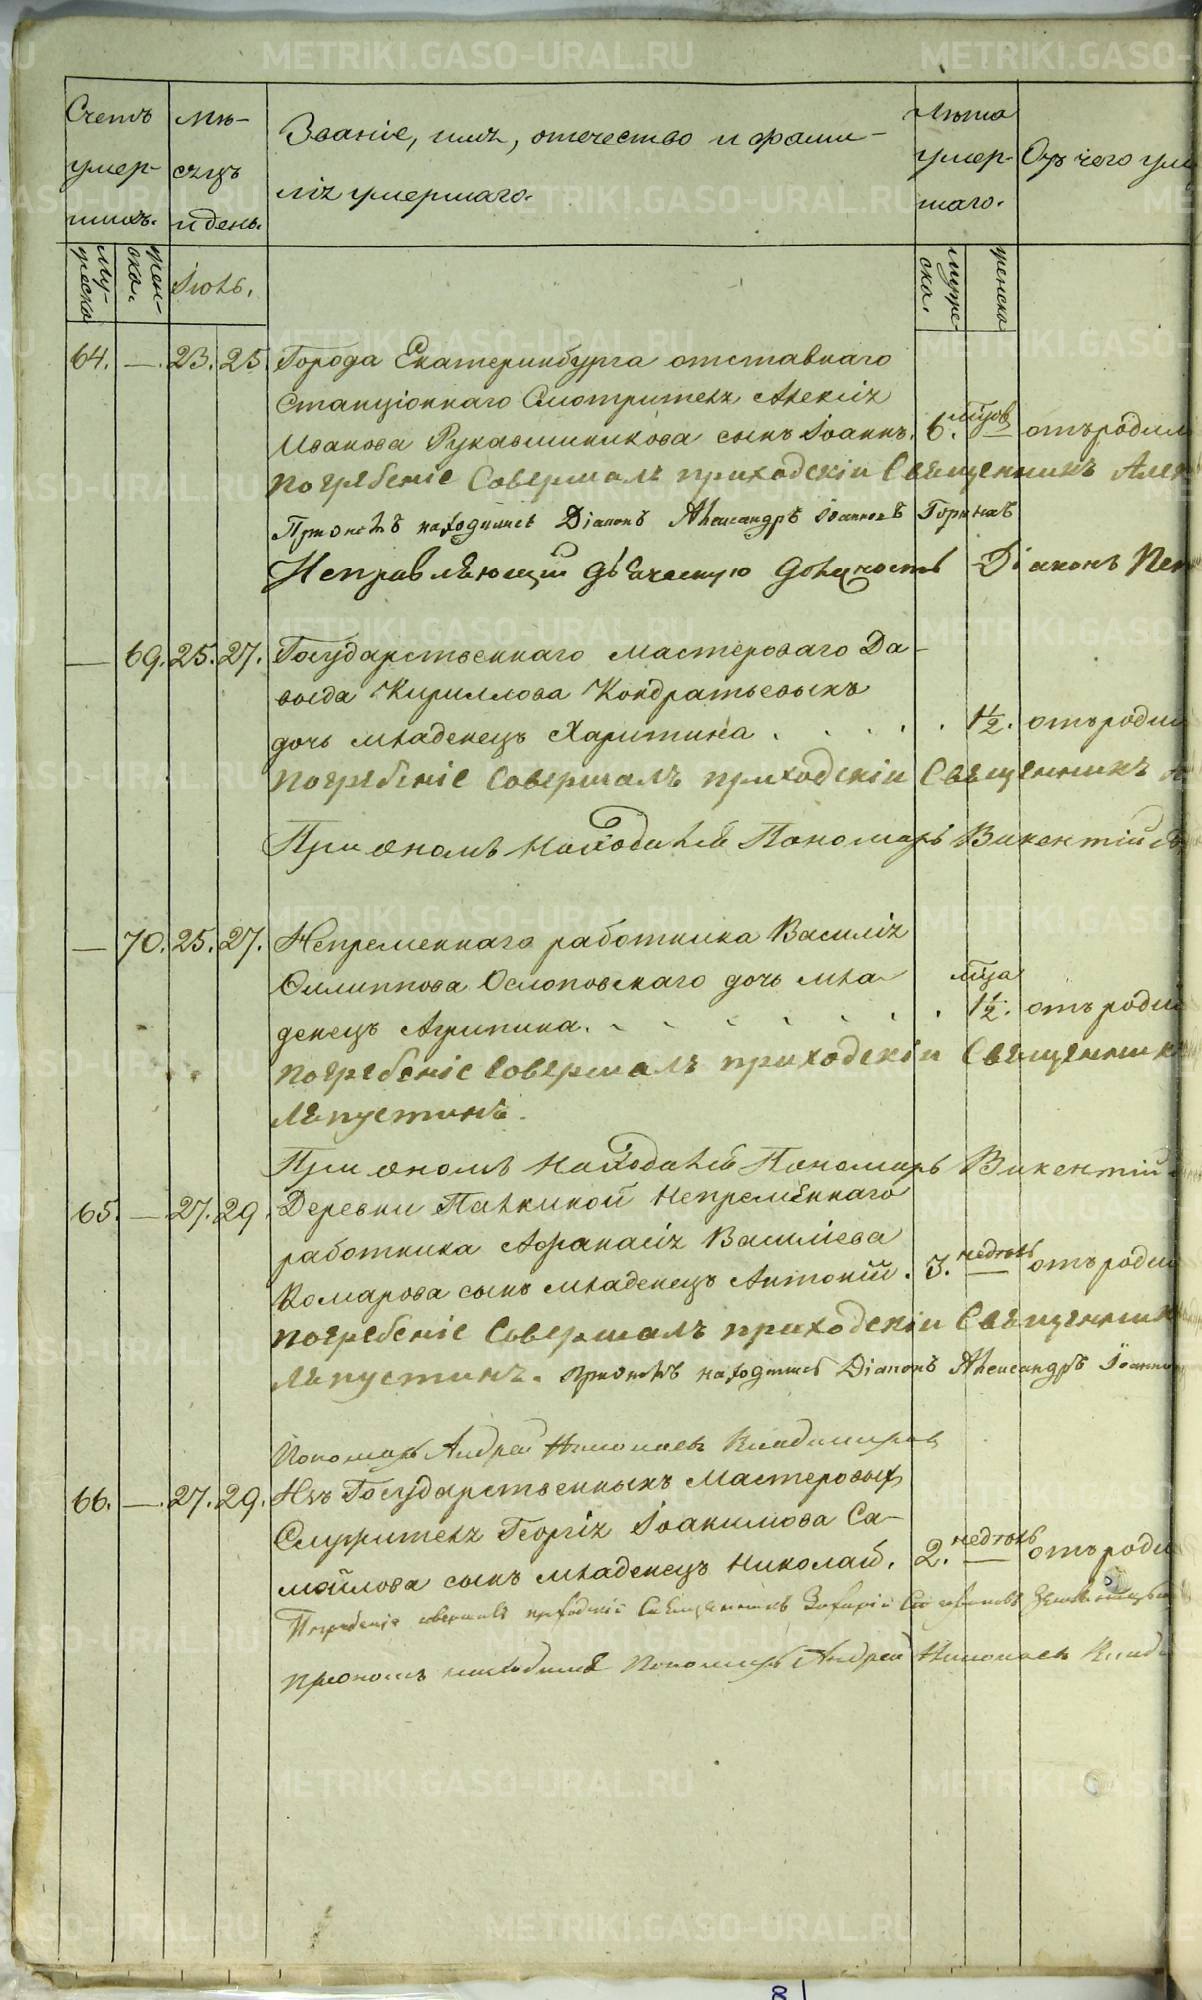 Счетъ умер- шихъ.
Мѣ- сяцъ и день.
Званіе, имя, отечество и фами-
лія умершаго.
Лѣта умер- шаго.
Отъ чего уме
Му- жеска
жен- ска.
Іюль.
муже- ска.
женска
64. — 23. 25. Города Екатеринбурга отставнаго
Станціоннаго Смотрителя Алексія
Иванова Рукавишникова сынъ Іоаннъ. 6. мцов — отъ родим
погребеніе Совершалъ приходскіи Священникъ Алек
При ономъ находился Діаконъ Александръ Іоанновъ Горинъ
Исправляющій дьяческую должность Діаконъ Пет
— 69. 25. 27. Государственнаго мастероваго Да-
выда Кириллова Кондратьевыхъ
дочь младенецъ Харитина . . . . . 1½. отъ родим
погребеніе Совершалъ приходскіи Священникъ А
При ономъ Находился Пономарь Викентій
— 70. 25. 27. Непременнаго работника Василія
Филиппова Ослоповскаго дочь мла
денецъ Агрипина. мца 1½. отъ родим
погребеніе Совершалъ приходскіи Священник
Лѣпустинъ.
При ономъ Находился Пономарь Викентій
65. — 27. 29. Деревни Палкиной Непремѣннаго
работника Афанасія Василіева
Комарова сынъ младенецъ Антоній. 3. недѣль — отъ родим
погребеніе Совершалъ приходскіи Священник
Лѣпустинъ. При ономъ находился Діаконъ Александръ Іоанно
Пономарь Андрей Николаевъ Владимиров
66. — 27. 29. Изъ Государственныхъ Мастеровых
Смотрителя Георгія Іоакимова Са-
мойлова сынъ младенецъ Николай. 2. недѣль — отъ роди
Погребеніе совершалъ приходскій Священникъ Захарій
При ономъ находился Пономарь Андрей Николаевъ Влад
81
METRIKI.GASO-URAL.RU